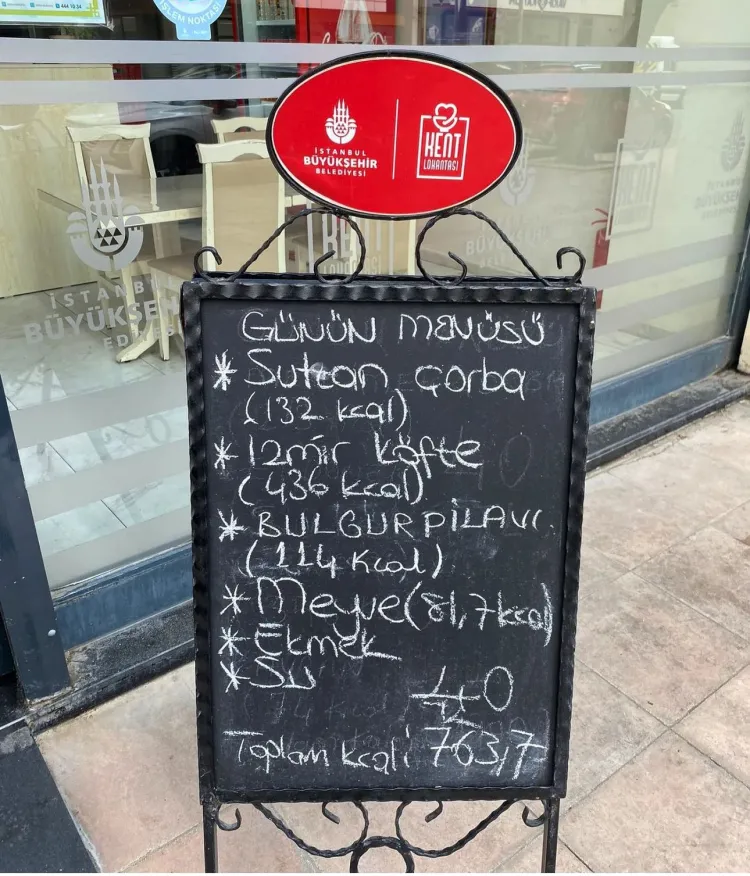 444 10 34
İŞLEM NOKTASI
İSTANBUL
BÜYÜKŞEHİR
BELEDİYESİ
KENT
LOKANTASI
İSTANBUL
BÜYÜKŞEHİR
GÜNÜN MENÜSÜ
* Sultan çorba
(132 kcal)
* Izmir köfte
(436 kcal)
* BULGUR PİLAVI.
(114 Kcal)
* Meyve (81,7 kcal)
* Ekmek
* Su
40
TL
Toplam kcali 763,7